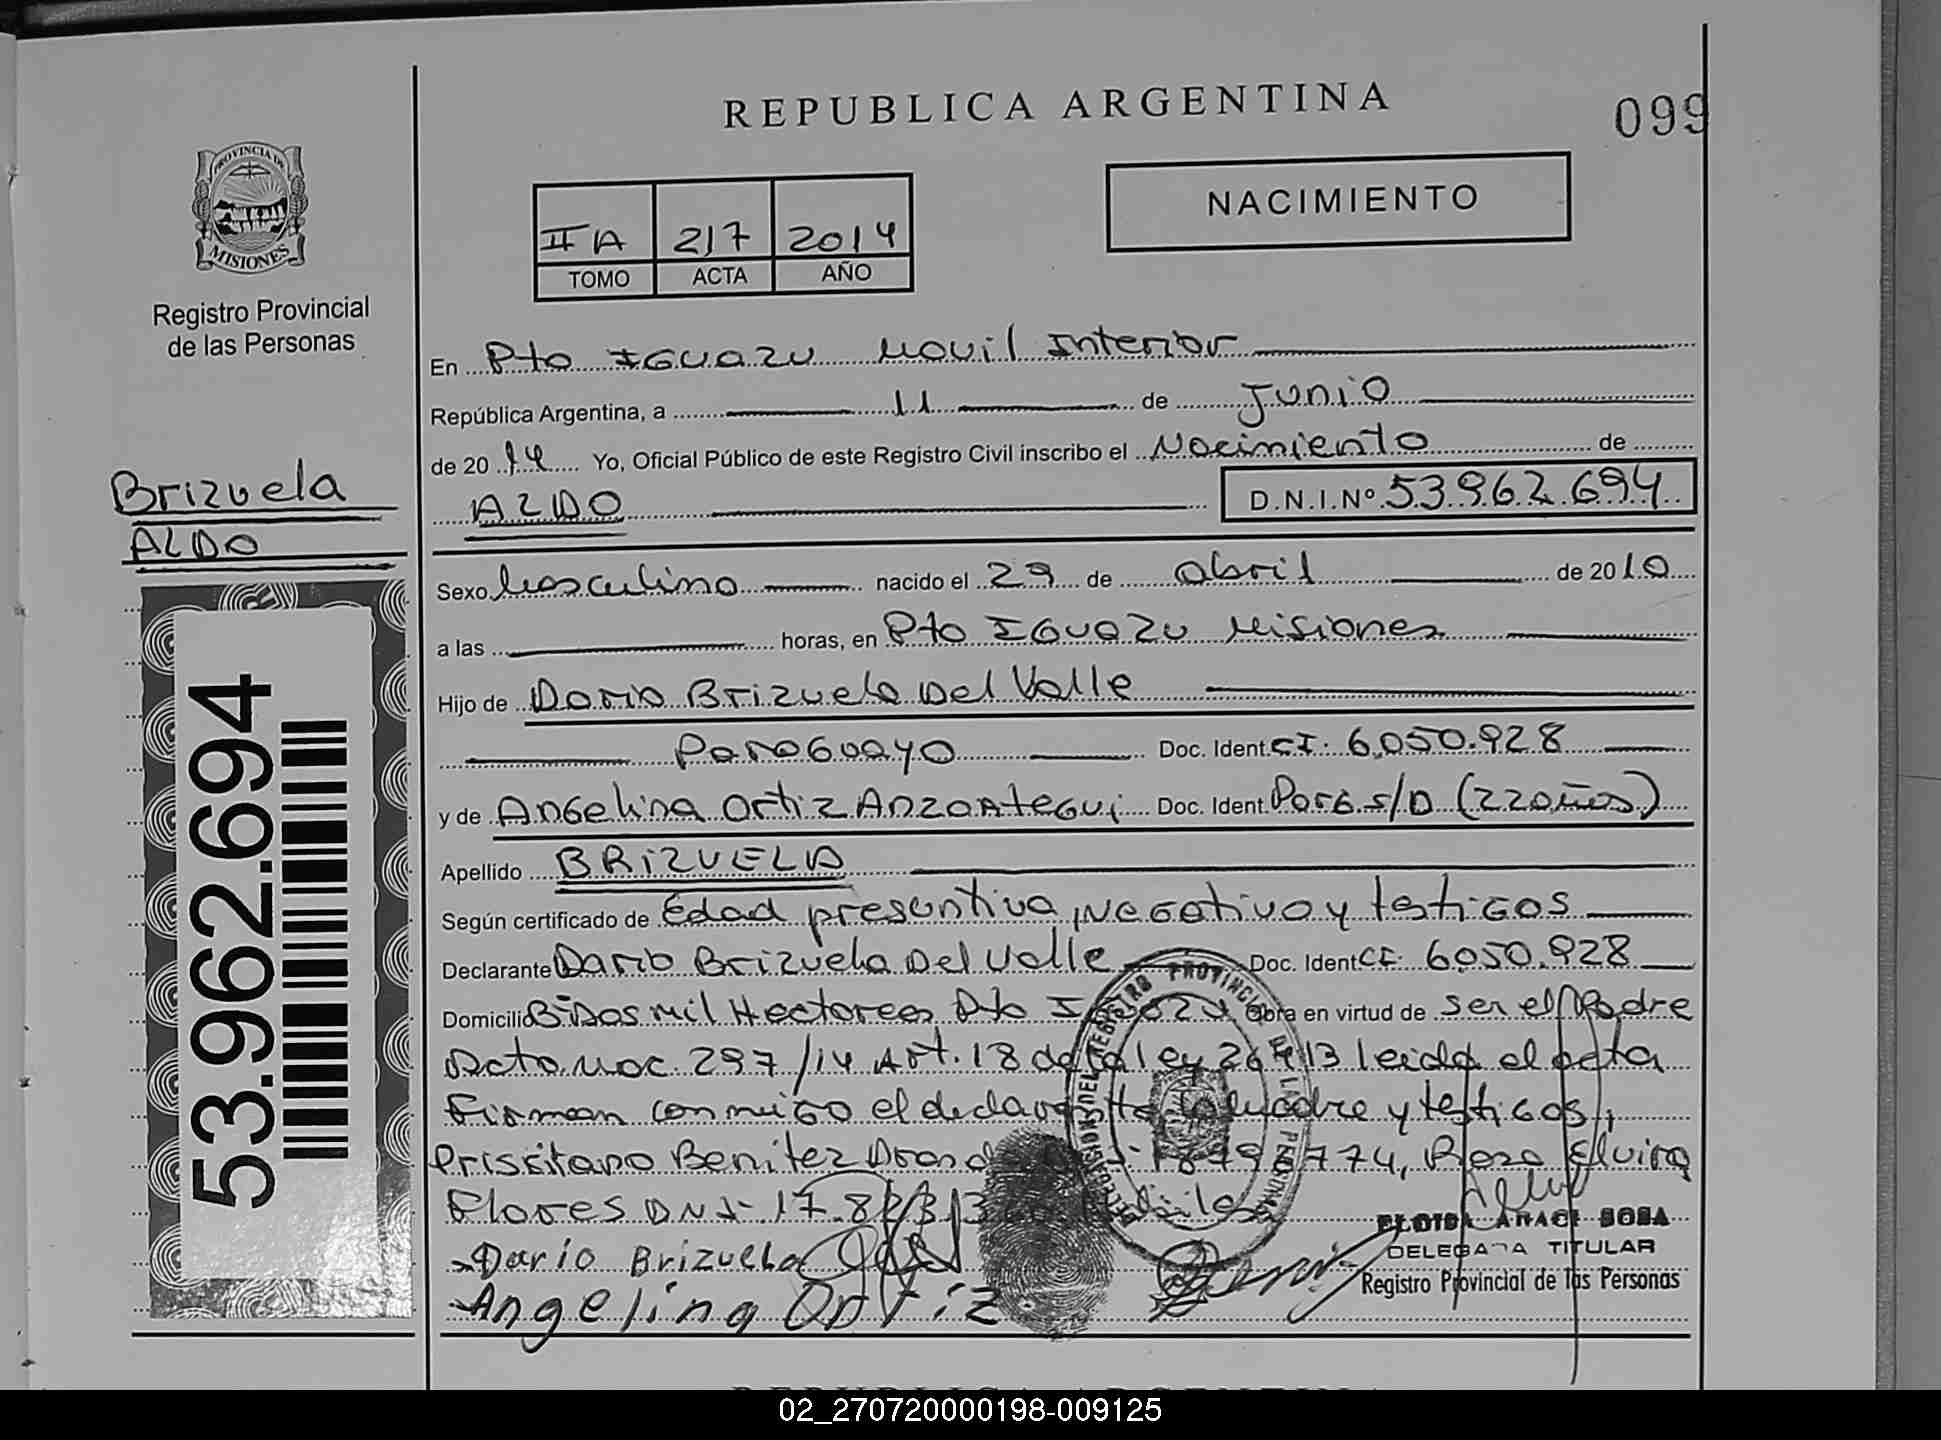 REPUBLICA ARGENTINA
099
PROVINCIA DE
MISIONES
Registro Provincial
de las Personas
NACIMIENTO
II A 217 2014
TOMO ACTA AÑO
En Pto IGUAZU Movil Interior
República Argentina, a 11 de Junio
de 20 14 Yo, Oficial Público de este Registro Civil inscribo el Nacimiento de
ALDO D.N.I.Nº 53.962.694
Brizuela
ALDO
Sexo Masculino nacido el 29 de abril de 20 10
a las horas, en Pto IGUAZU Misiones
Hijo de Dario Brizuela Del Valle
Paraguayo Doc. Ident. CI. 6.050.928
y de Angelina Ortiz Anzoategui Doc. Ident. Parg. s/D (22 años)
Apellido BRIZUELA
Según certificado de Edad presuntiva, Negativo y testigos
Declarante Dario Brizuela Del Valle Doc. Ident. CI. 6.050.928
Domicilio Bº Dos mil Hectareas Pto obra en virtud de ser el Padre
Dcto Nac. 297/14 Art. 18 de la ley 26413 leida el acta
Firman conmigo el declarante la madre y testigos,
Benitez Rosa Elvira
Flores DNI 17.8
Dario Brizuela
Angelina Ortiz
53.962.694
DELEGACION DEL REGISTRO PROVINCIAL DE LAS PERSONAS
ELOISA ARACI SOSA
DELEGADA TITULAR
Registro Provincial de las Personas
REPUBLICA ARGENTINA
02_270720000198-009125